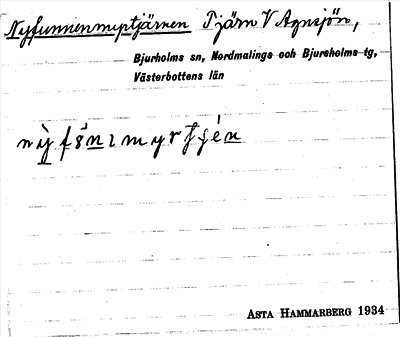 Nyfunnenmyrtjärnen Tjärn V Agnsjön,
Bjurholms sn, Nordmalings och Bjurholms tg,
Västerbottens län
ASTA HAMMARBERG 1934